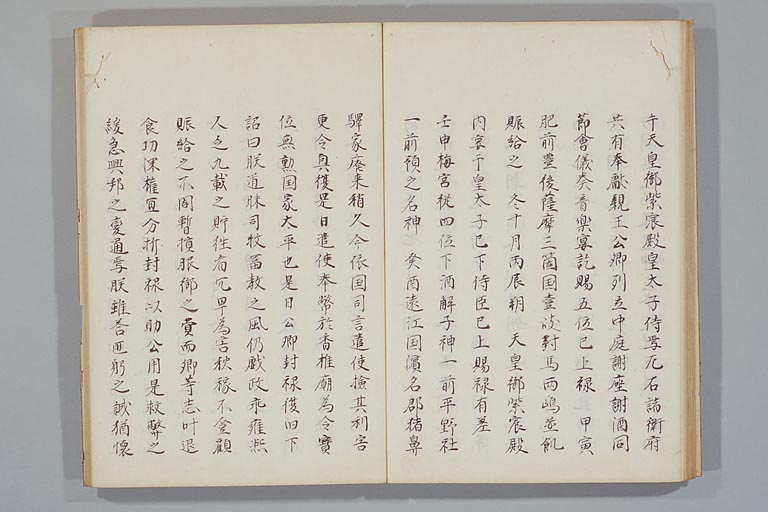 午天皇御紫宸殿皇太子侍焉左右諸衛府
共有奉獻親王公卿列立中庭謝座謝酒同
節會儀奏音樂宴訖賜五位已上禄 甲寅
肥前豊後薩摩三箇国壹岐對馬両嶋並飢
賑給之 冬十月丙辰朔 天皇御紫宸殿
内宴于皇太子已下侍臣已上賜禄有差
壬申梅宮従四位下酒解子神一前平野社
一前預之名神 癸酉遠江国濱名郡猪鼻
驛家廃来稍久今依国司言遣使撿其利害
更令興復是日遣使奉幣於香椎廟為令寶
位無動国家太平也是日公卿封禄復旧下
詔曰朕道昧司牧冨教之風仍戯政乖雍熙
人乏九載之貯往有水旱為害秋稼不登顧
賑給之不周暫損服御之費而卿等志叶退
食功深權宜分折封禄以助公用是救弊之
緩急興邦之變通焉朕雖荅匪躬之誠猶懐